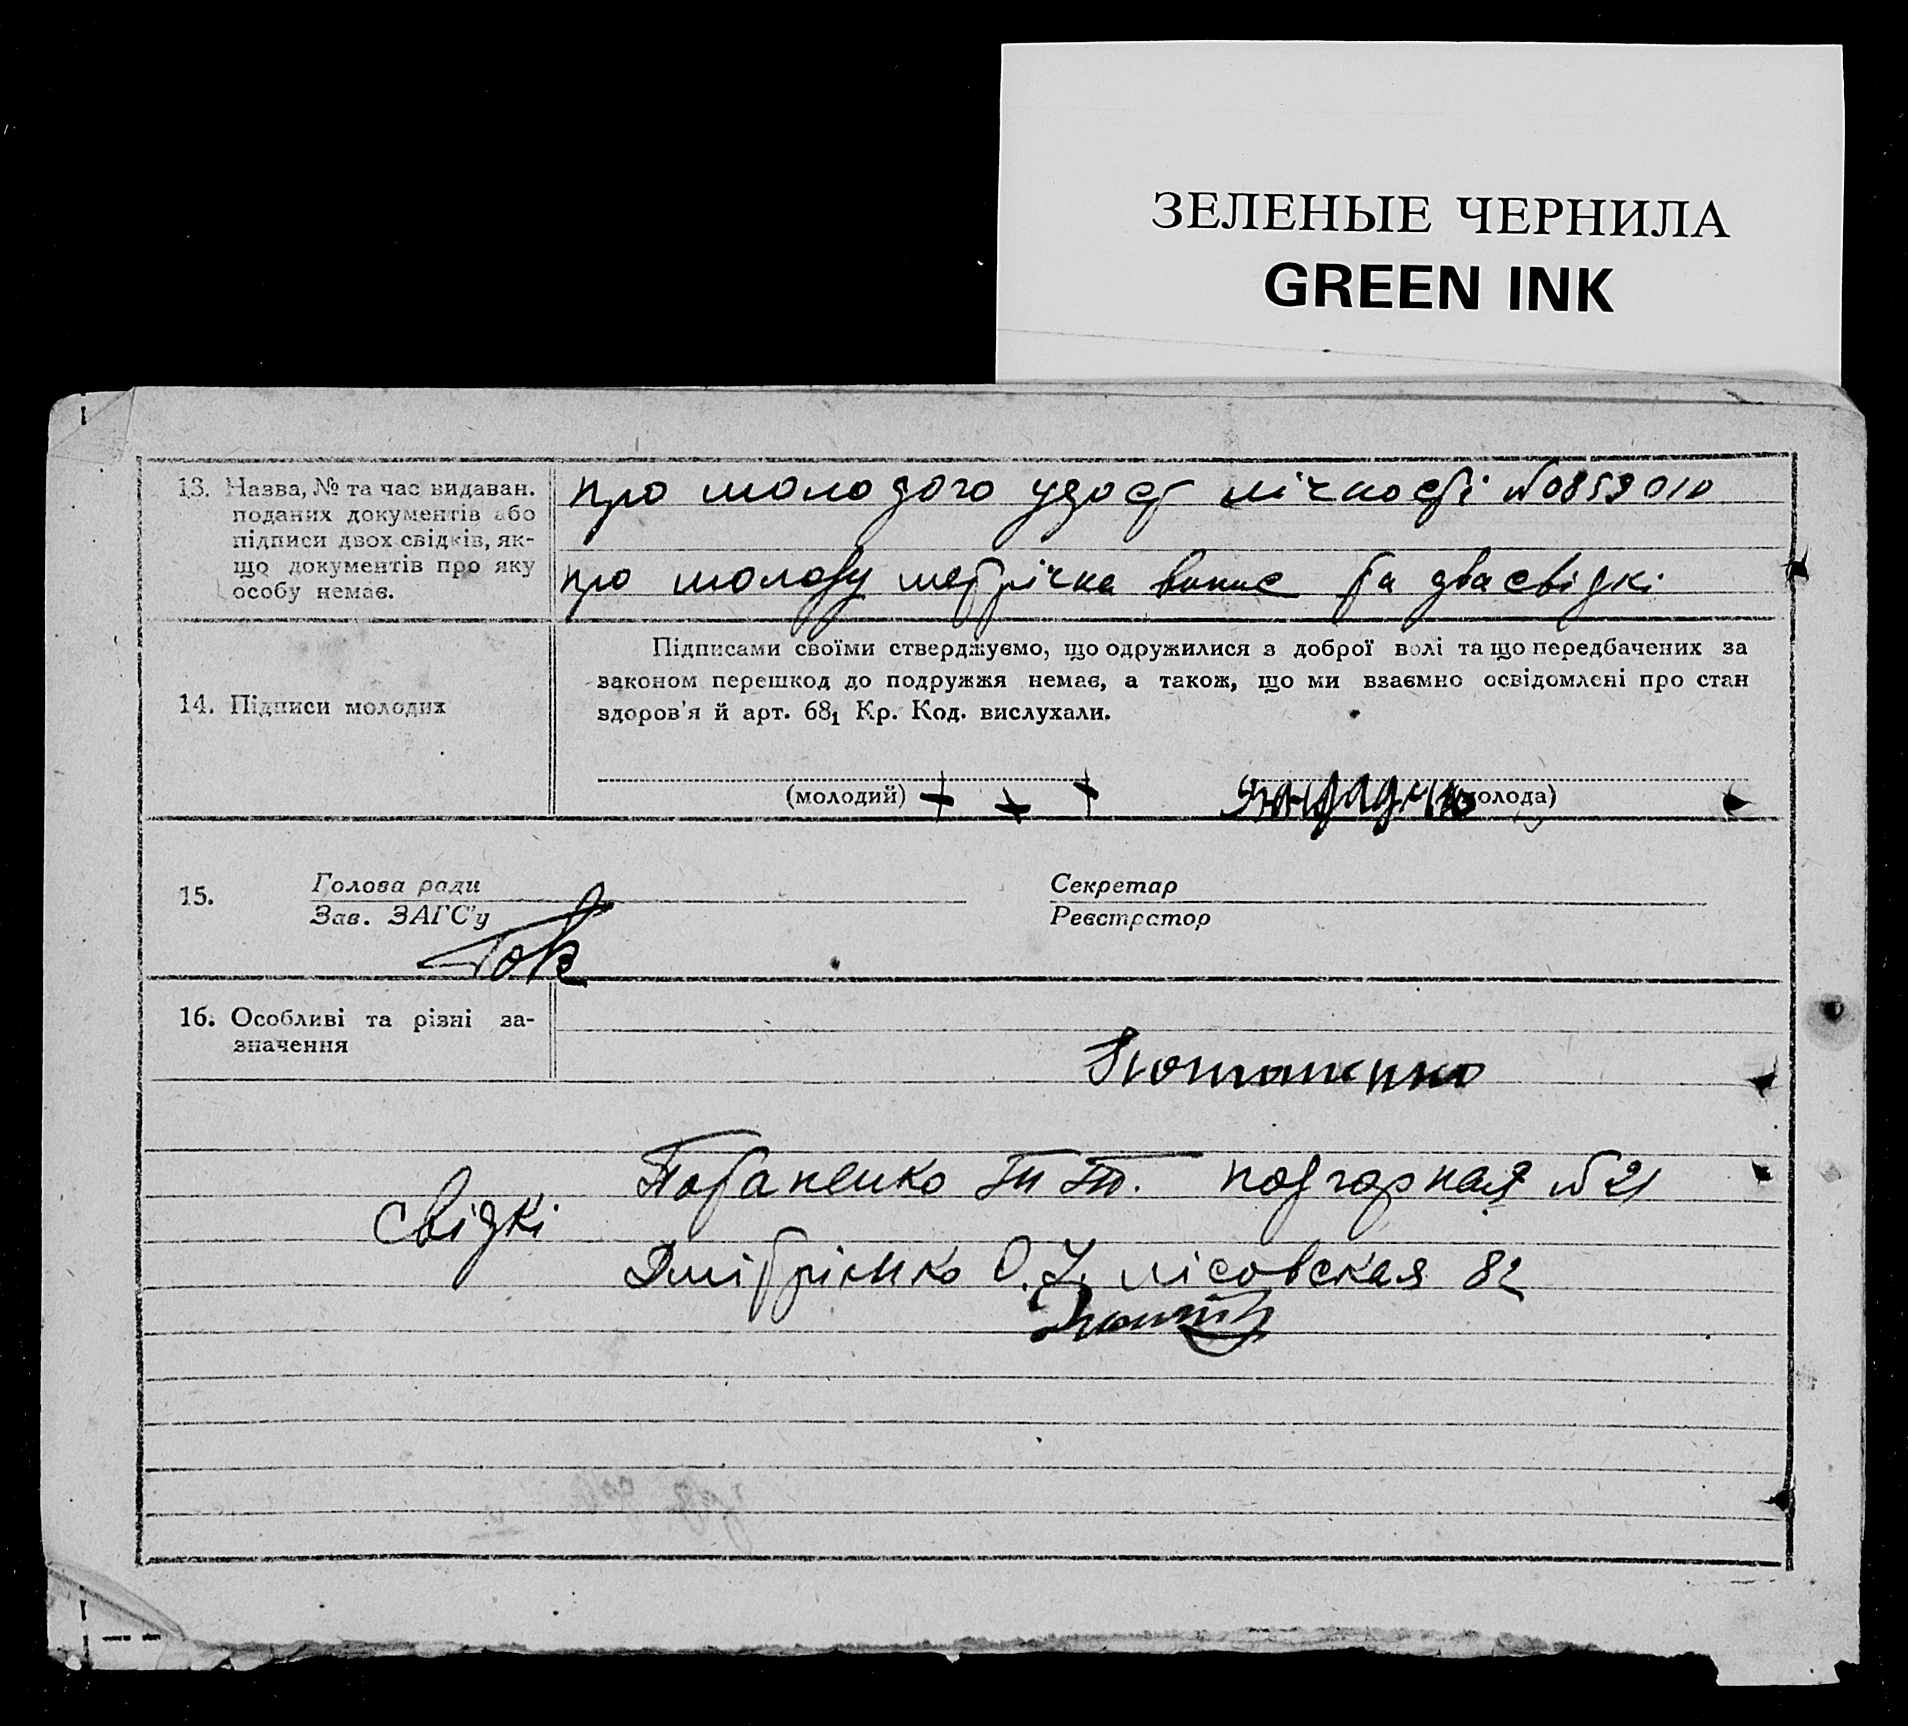 ЗЕЛЕНЫЕ ЧЕРНИЛА
GREEN INK
13. Назва, № та час видаван.
поданих документів або
підписи двох свідків, як-
що документів про яку
особу немає.
про молодого удост лічності №0859010
про молоду метрічна випис та два свідкі
14. Підписи молодих
Підписами своїми стверджуємо, що одружилися з доброї волі та що передбачених за
законом перешкод до подружжя немає, а також, що ми взаємно освідомлені про стан
здоров'я й арт. 68₁ Кр. Код. вислухали.
(молодий) + + +
(молода)
15. Голова ради
Зав. ЗАГС'у
Секретар
Реєстратор
16. Особливі та різні за-
значення
свідкі
подгорная №21
Дмітрієнко О. лісовская 82